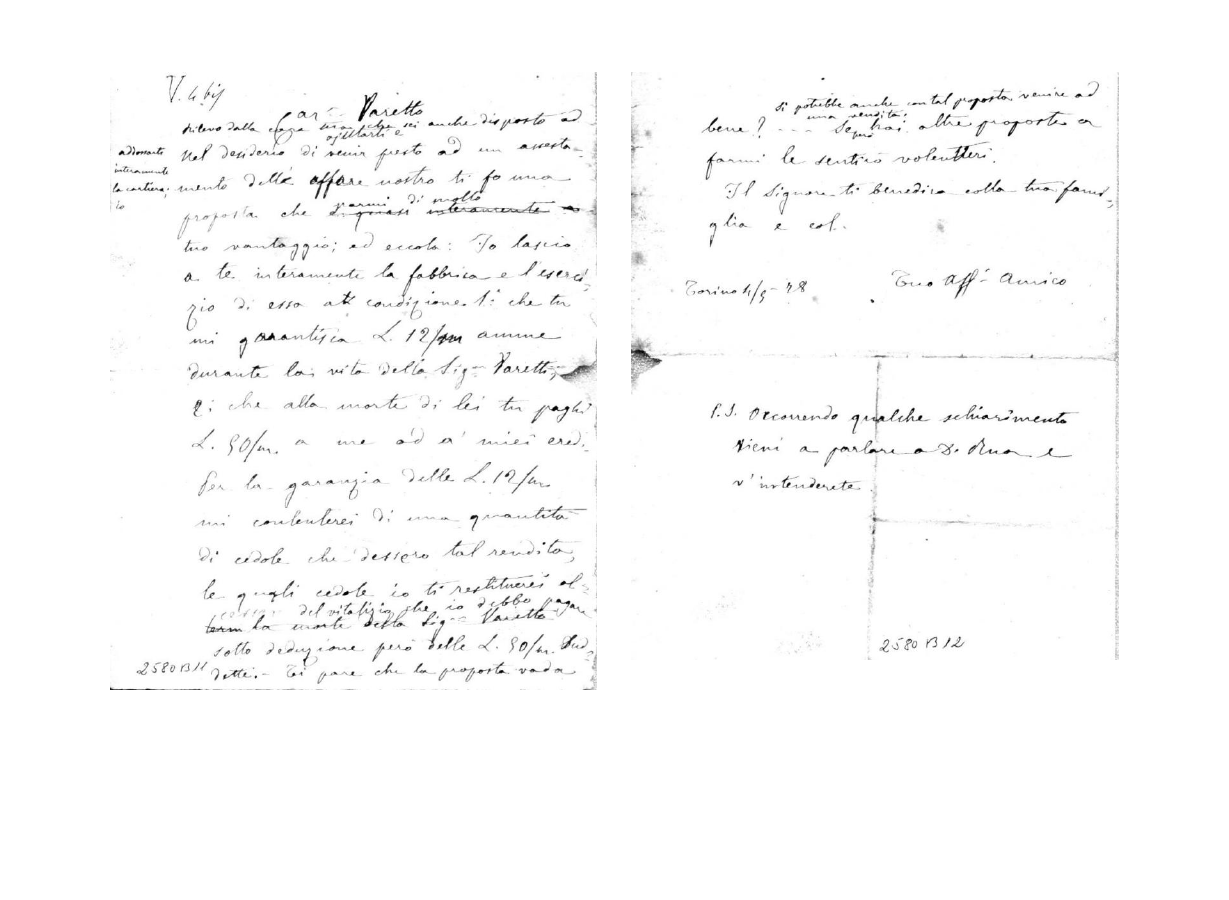 V. 4 bis
Car. Varetto
Rilevo dalla che sei anche disposto ad
adossarti
interamente
la cartiera;
Nel desiderio di venir presto ad un assesta-
mento dello affare nostro ti fo una
proposta che parmi di molto di quasi interamente a
tuo vantaggio; ed eccola: Io lascio
a te interamente la fabbrica e l'eserci-
zio di essa a condizione 1: che tu
mi garantisca L. 12/m annue
durante la vita della Sig.ra Varetto;
2: che alla morte di lei tu paghi
L. 50/m. a me od a' miei eredi.
Per la garanzia delle L. 12/m
mi contenterei di una quantità
di cedole che dessero tal rendita,
le quali cedole io ti restituirei al-
del vitalizio che io debbo pagare
la morte della Sig.ra Varetto
sotto deduzione però delle L. 50/m. sud-
dette. - Ti pare che la proposta vada
2580 B 11
si potrebbe anche con tal proposta venire ad
una vendita.
bene? --- Se hai altre proposte a
farmi le sentirò volentieri.
Il Signore ti benedica colla tua fami-
glia e col.
Torino 4/5 - 78 Tuo aff. Amico
P.S. Occorrendo qualche schiarimento
vieni a parlare a D. Rua e
v'intenderete.
2580 B 12